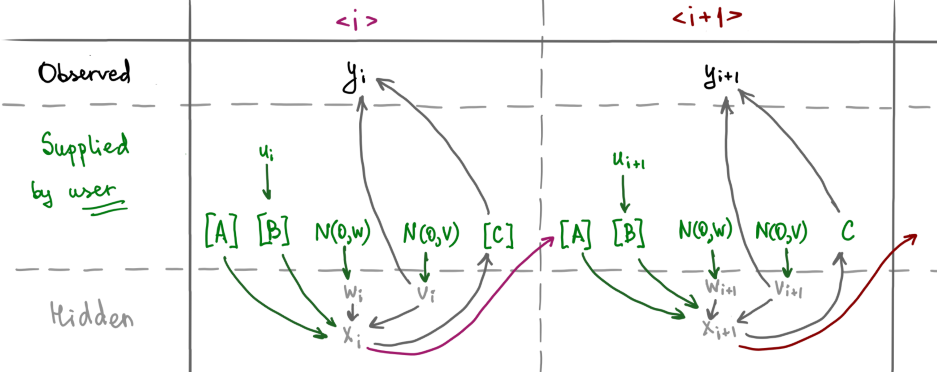 <i> <i+1>
Observed y_i y_{i+1}
Supplied
by user
u_i u_{i+1}
[A] [B] N(0,W) N(0,V) [C] [A] [B] N(0,W) N(0,V) C
Hidden
w_i v_i w_{i+1} v_{i+1}
x_i x_{i+1}